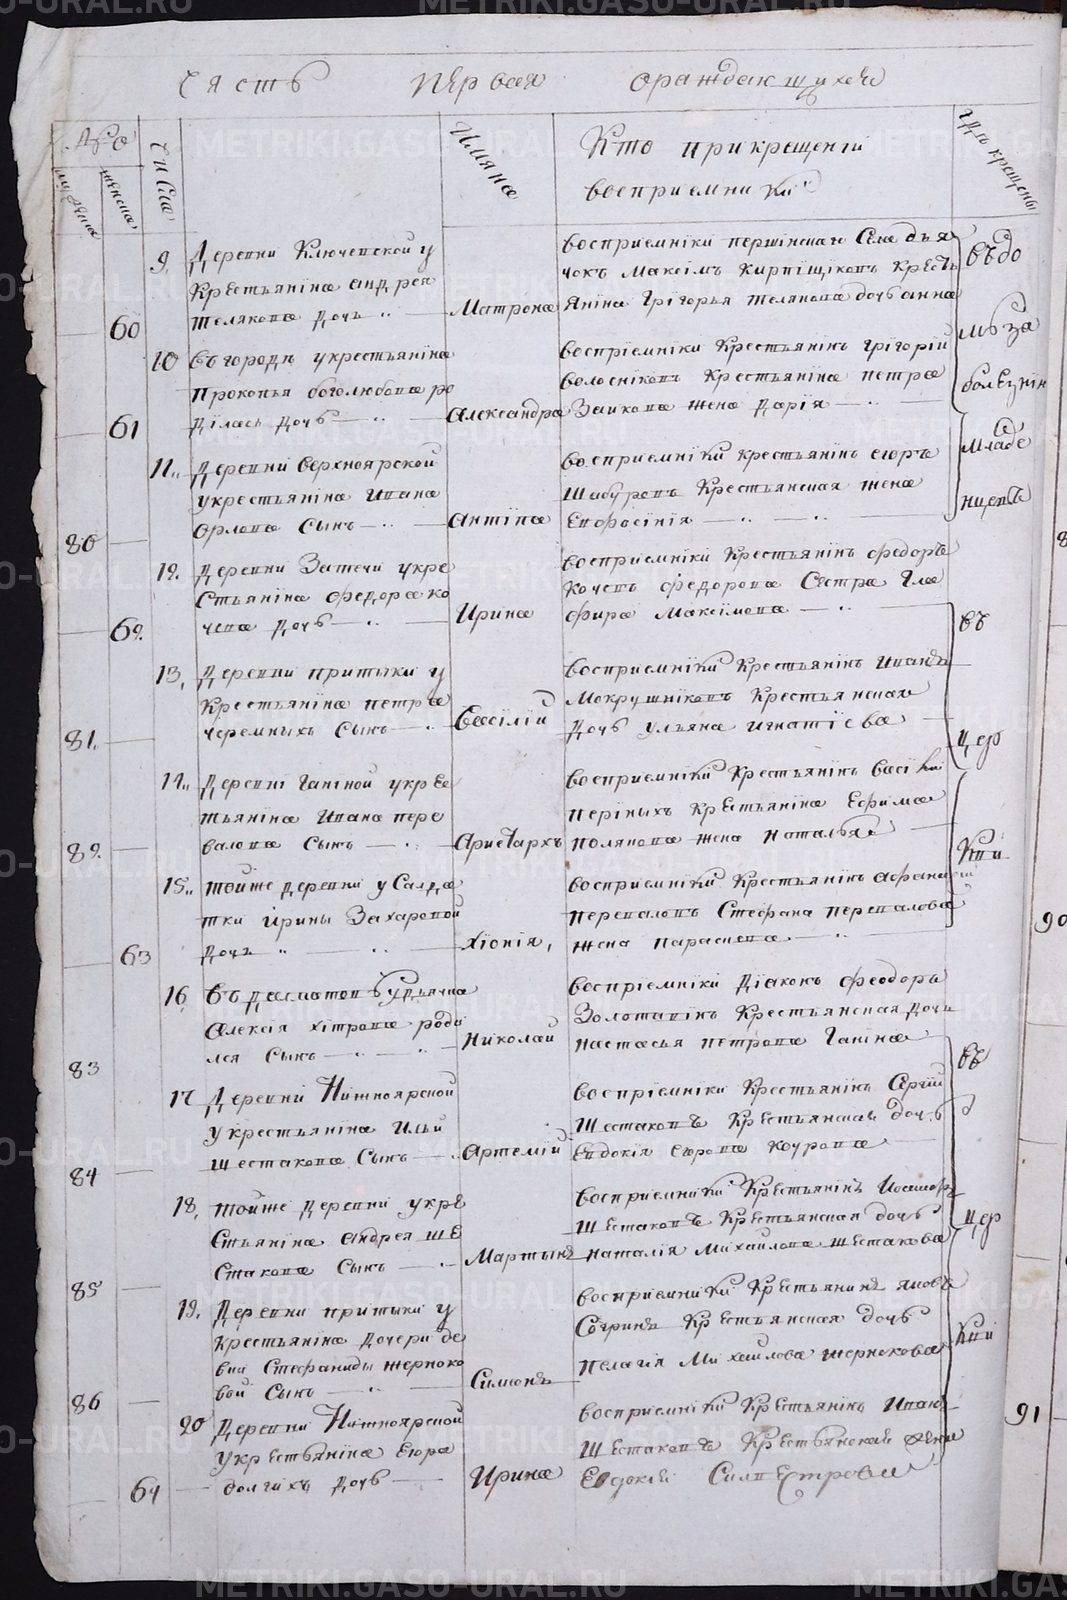 Часть первая ораждающихся
Дѣо
мужена
женска
Числа
Имяна
Кто при крещенiи
восприемники
Гдѣ крещены
9. Деревни Ключевской у
крестьянина Андрея
Телякова дочь
60
Матрона
восприемники першинскаго Села дья
чокъ Максiмъ Кирпiщiковъ Кресть
янiна Григорья Телякова дочь анна
10 въ городѣ у крестьянiна
Прокопья боголюбова ро
дiлась дочь
61
Александра
восприемники Крестьянiнъ григорiй
волоснiковъ Крестьянiна петра
Заикова жена Дарiя
11. Деревни Верхноярской
у крестьянiна Ивана
Орлова Сынъ
80
Антiпа
восприемнiки крестьянiнъ егоръ
Шабуровъ Крестьянская жена
Евфросiнiя
въ до
мѣ за
болезнiн
Младе
нцевъ
12. Деревни Затечи у кре
стьянiна Федора Ко
чева дочь
62
Ирина
восприемнiки Крестьянiнъ федоръ
Кочевъ федорова Сестра Гла
фира Максiмова
13, Деревни притыки у
Крестьянiна петра
черемныхъ Сынъ
81.
Васiлiй
восприемнiки Крестьянiнъ Иванъ
Мокрушнiковъ Крестьянская
дочь Ульяна игнатiева
14. Деревнi Ганiной у кре
тьянiна Ивана пере
валова Сынъ
82.
Аристархъ
восприемнiки Крестьянiнъ Васiлiй
перiныхъ Крестьянiна Ефима
Полякова жена Наталья
15. тойже деревни у Салда
тки iрины Захаровой
дочь
63
Хiонiя,
восприемнiки Крестьянiнъ афанасiй
Переваловъ Стефана перевалова
жена параскева
въ
цер
кви
16 въ далматовѣ у дьячка
Алексiя хiтрова роди
лся Сынъ
83
Николай
восприемнiки Дiаконъ феодоръ
Золотавiнъ Крестьянская дочь
настасья петрова Ганiна
17 Деревни Нижноярской
у крестьянiна Ильи
шестакова Сынъ
84
Артемiй
восприемнiки Крестьянiнъ Сергiй
Шестаковъ Крестьянская дочь
Евдокiя егорова Коурова
18, тойже деревни у кре
стьянiна Андрея ше
стакова Сынъ
85
Мартынъ
восприемники Крестьянiнъ
Шестаковъ Крестьянская дочь
наталiя Михаилова шестакова
19. Деревни притыки у
Крестьянiна дочери де
вки Стефаниды жерноко
вой Сынъ
86
Симонъ
восприемники Крестьянинъ яковъ
Согринъ Крестьянская дочь
Пелагiя Михаилова жернокова
20 Деревни Нижноярской
у крестьянiна егора
долгихъ дочь
64
Ирина
восприемнiки Крестьянiнъ Иванъ
Шестаковъ Крестьянская жена
Евдокiя Силвестрова
въ
цер
кви
90
91
METRIKI.GASO-URAL.RU